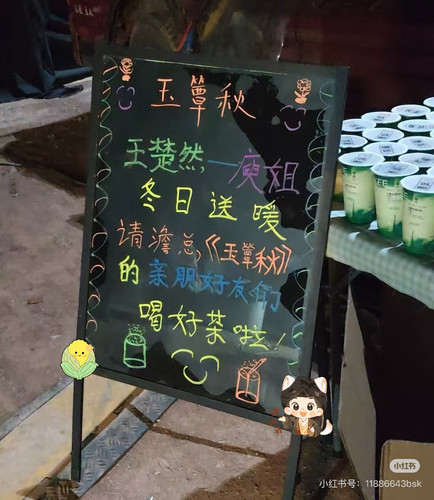 玉簟秋
王楚然—庾姐
冬日送暖
请澹总,《玉簟秋》
的亲朋好友们
喝好茶啦!
小红书
小红书号:11886643bsk